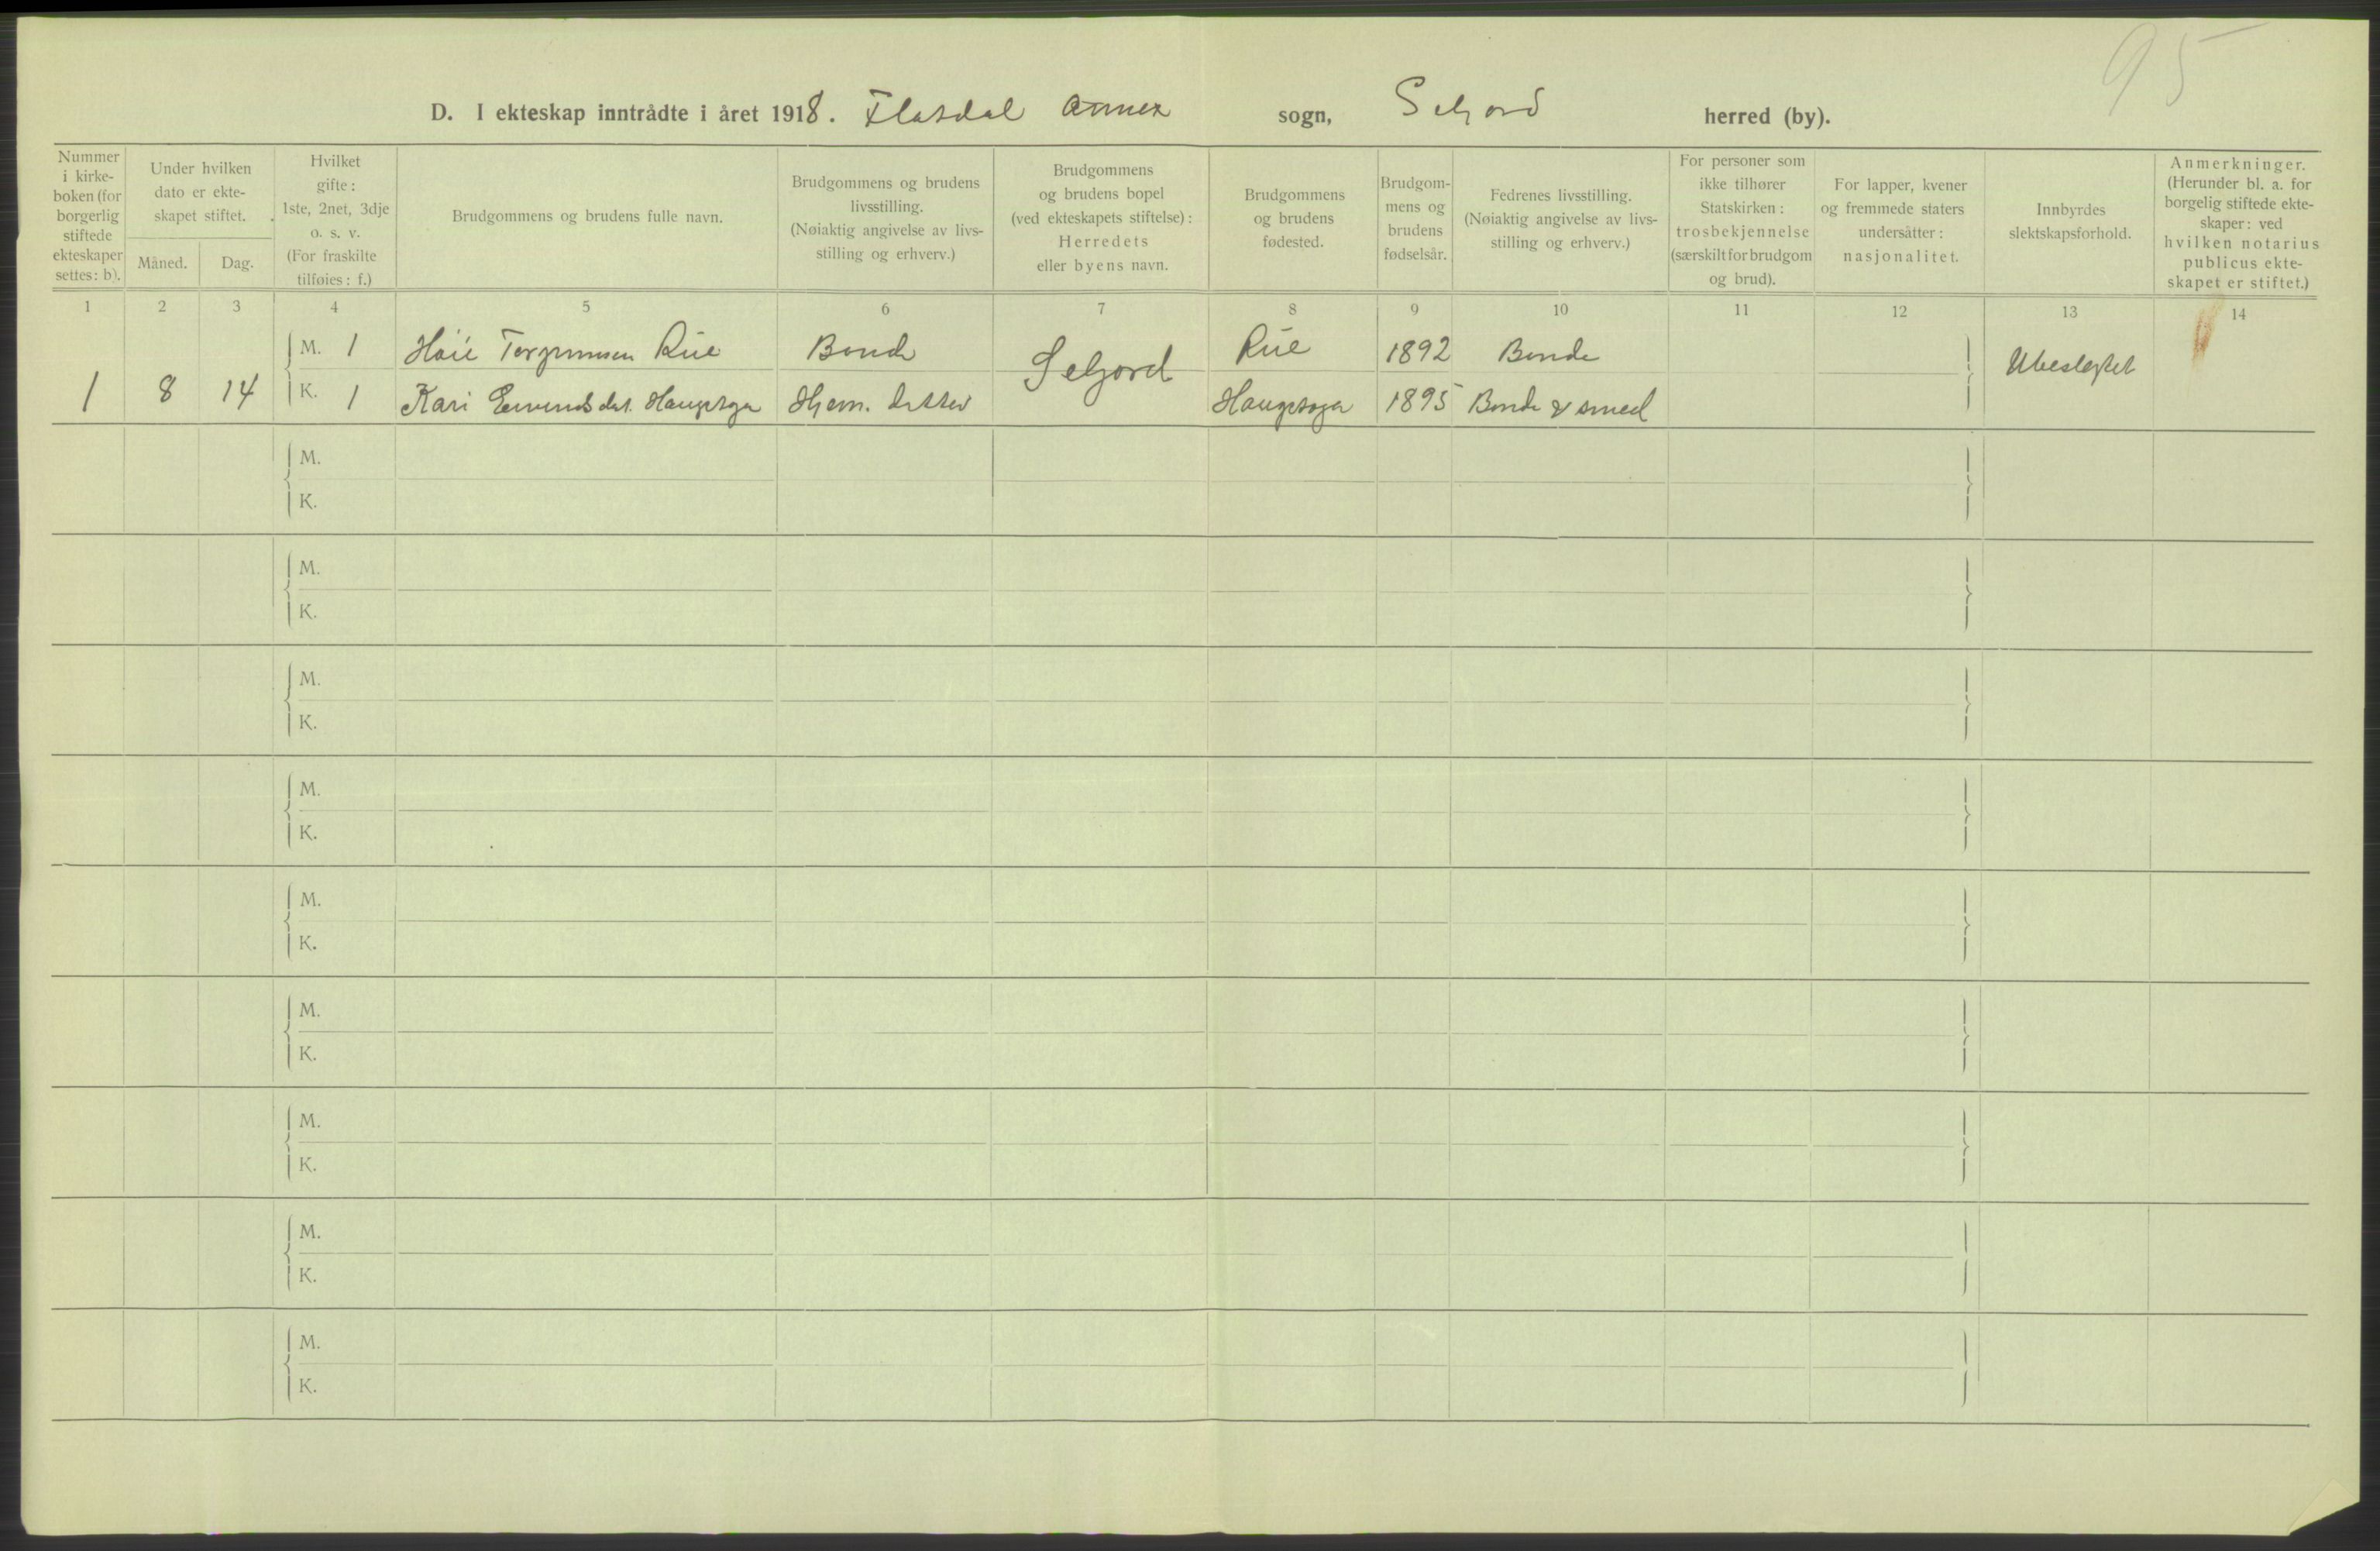 95
D. I ekteskap inntrådte i året 1918. Flatdal annex sogn, Seljord herred (by).
Nummer i kirke- boken (for borgerlig stiftede ekteskaper settes: b).
Under hvilken dato er ekte- skapet stiftet.
Måned.
Dag.
Hvilket gifte: 1ste, 2net, 3dje o. s. v. (For fraskilte tilføies: f.)
Brudgommens og brudens fulle navn.
Brudgommens og brudens livsstilling. (Nøiaktig angivelse av livs- stilling og erhverv.)
Brudgommens og brudens bopel (ved ekteskapets stiftelse): Herredets eller byens navn.
Brudgommens og brudens fødested.
Brudgom- mens og brudens fødselsår.
Fedrenes livsstilling. (Nøiaktig angivelse av livs- stilling og erhverv.)
For personer som ikke tilhører Statskirken: trosbekjennelse (særskilt for brudgom og brud).
For lapper, kvener og fremmede staters undersåtter: nasjonalitet.
Innbyrdes slektskapsforhold.
Anmerkninger. (Herunder bl. a. for borgelig stiftede ekte- skaper: ved hvilken notarius publicus ekte- skapet er stiftet.)
1 2 3 4 5 6 7 8 9 10 11 12 13 14
M. 1 Torgrimsen Rue Bonde Seljord Rue 1892 Bonde Ubeslegtet
1 8 14 K. 1 Kari Haugetoga Hjem. datter Haugetoga 1895 Bonde & smed
M.
K.
M.
K.
M.
K.
M.
K.
M.
K.
M.
K.
M.
K.
M.
K.
M.
K.